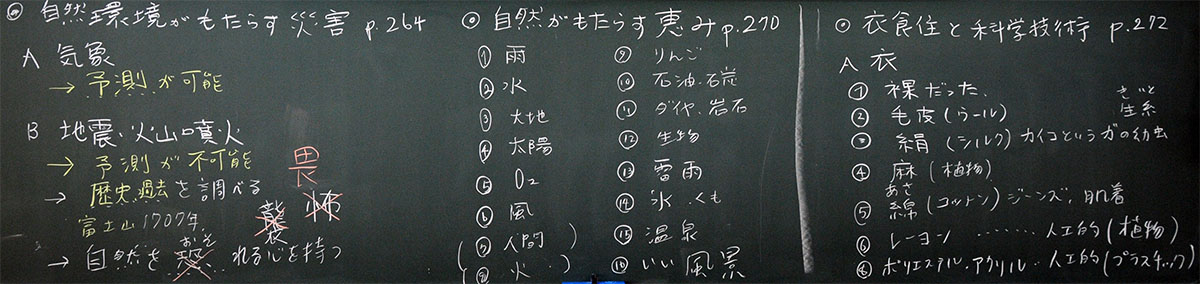 ◎ 自然環境がもたらす災害 p.264
A 気象
→ 予測が可能
B 地震・火山噴火
→ 予測が不可能
→ 歴史過去を調べる
富士山1707年
→ 自然を恐れる心を持つ
おそ
畏
怖
◎ 自然がもたらす恵み p.270
① 雨
② 水
③ 大地
④ 太陽
⑤ O2
⑥ 風
(⑦ 人間 )
(⑧ 火 )
⑨ りんご
⑩ 石油・石炭
⑪ ダイヤ、岩石
⑫ 生物
⑬ 雷雨
⑭ 氷 くも
⑮ 温泉
⑯ いい風景
◎ 衣食住と科学技術 p.272
A 衣
① 裸だった、
② 毛皮(ウール)
きいと
生糸
③ 絹(シルク)カイコというガの幼虫
④ 麻(植物)
あさ
⑤ 綿(コットン)ジーンズ、肌着
⑥ レーヨン ‥‥‥‥ 人工的(植物)
⑧ ポリエステル・アクリル‥人工的(プラスチック)